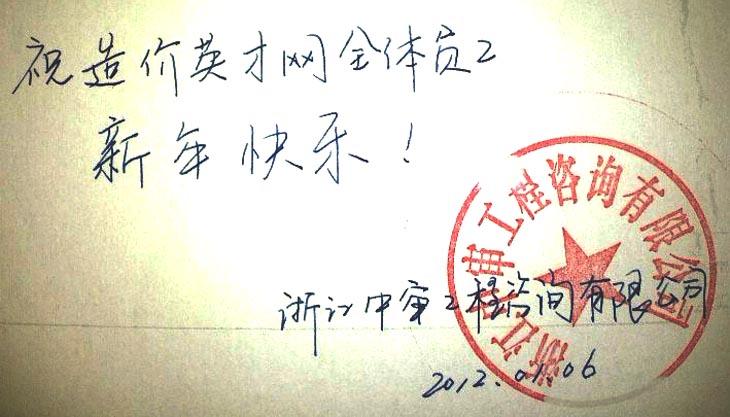 祝造价英才网全体员工
新年快乐！
浙江中审工程咨询有限公司
浙江中审工程咨询有限公司
2012.01.06